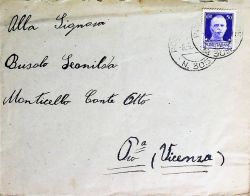 Alla Signora
Busolo Leonilda
Monticello Conte Otto
Pro^a (Vicenza)
50
N. 805